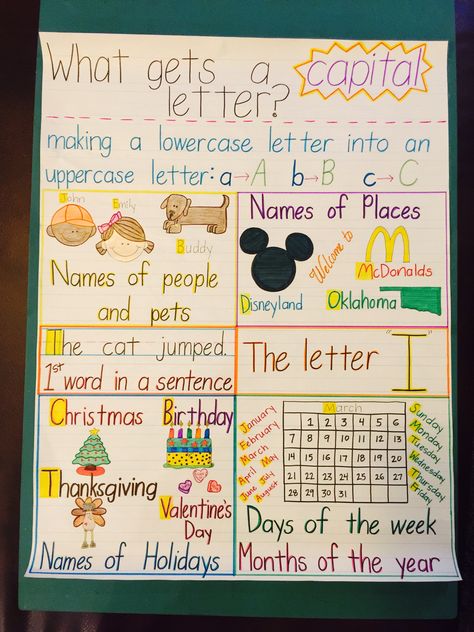 What gets a capital
letter?
making a lowercase letter into an
uppercase letter: a→A b→B c→C
John
Emily
Buddy
Names of people
and pets
Names of Places
Welcome to
McDonalds
Disneyland
Oklahoma
The cat jumped.
1st word in a sentence
The letter "I"
Christmas
Birthday
Thanksgiving
Valentine's
Day
Names of Holidays
January
February
March
April May
June July
August
March
1 2 3 4 5 6
7 8 9 10 11 12 13
14 15 16 17 18 19 20
21 22 23 24 25 26 27
28 29 30 31
Sunday
Monday
Tuesday
Wednesday
Thursday
Friday
Days of the week
Months of the year